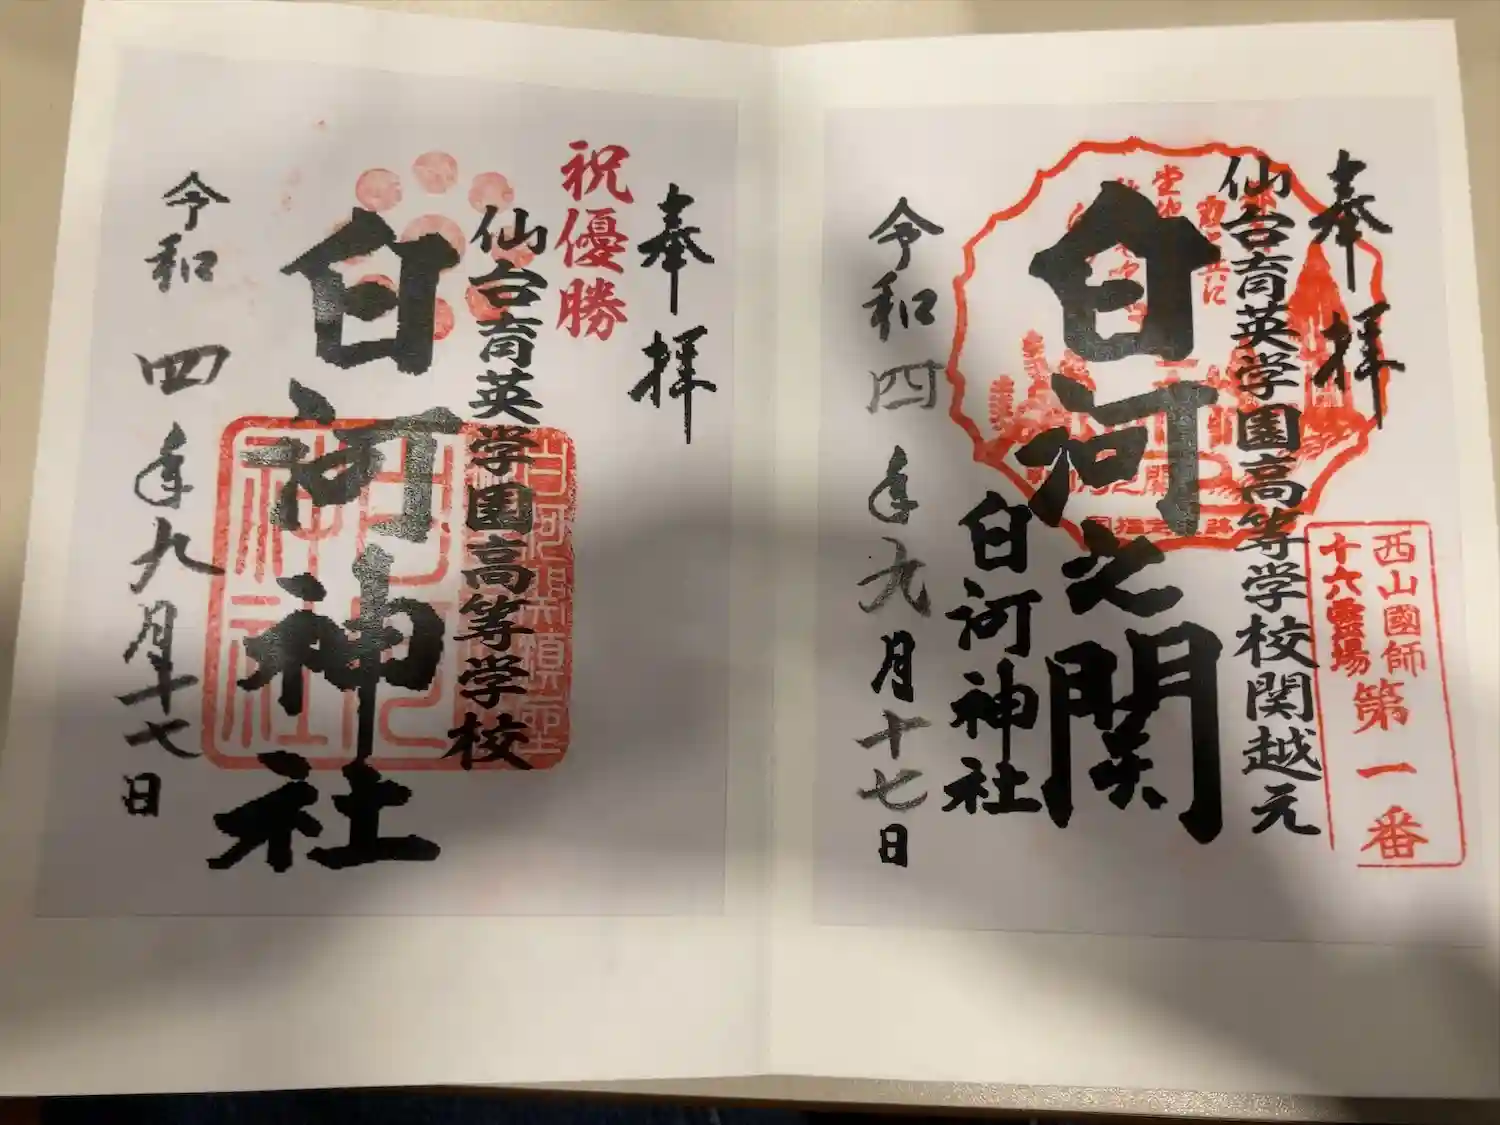 奉拝
仙台育英学園高等学校関越元
白河之関
白河神社
令和四年九月十七日
西山國師
十六霊場
第一番
奉拝
祝優勝
仙台育英学園高等学校
白河神社
令和四年九月十七日